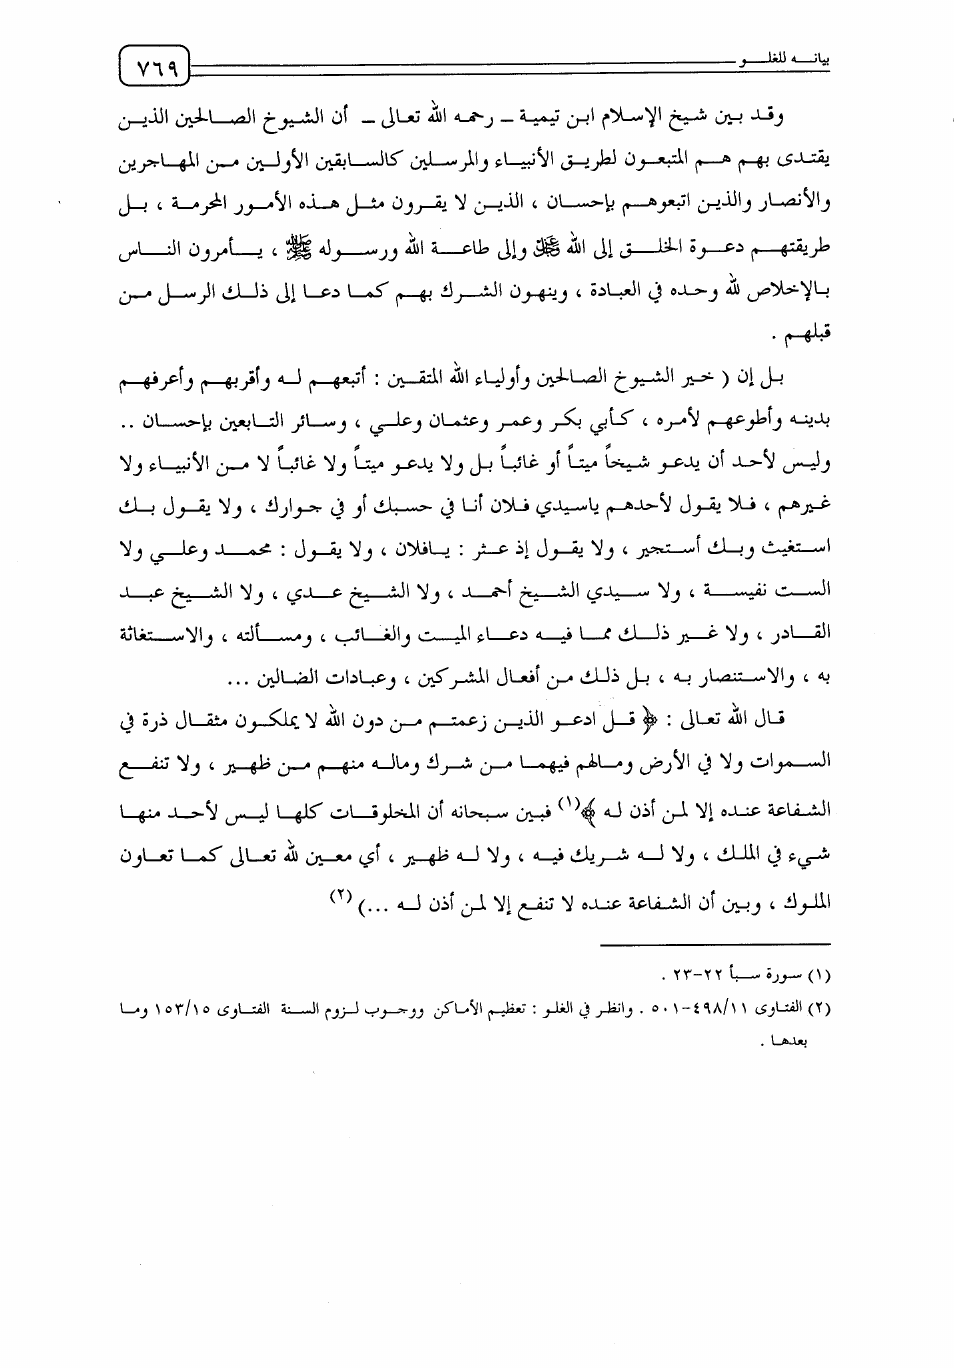 بيانه للغلو
٧٦٩
وقد بين شيخ الإسلام ابن تيمية – رحمه الله تعالى – أن الشيوخ الصالحين الذين
يقتدى بهم هم المتبعون لطريق الأنبياء والمرسلين كالسابقين الأولين من المهاجرين
والأنصار والذين اتبعوهم بإحسان ، الذين لا يقرون مثل هذه الأمور المحرمة ، بل
طريقتهم دعوة الخلق إلى الله ﷺ وإلى طاعة الله ورسوله ﷺ ، يأمرون الناس
بالإخلاص لله وحده في العبادة ، وينهون الشرك بهم كما دعا إلى ذلك الرسل من
قبلهم .
بل إن ( خير الشيوخ الصالحين وأولياء الله المتقين : أتبعهم له وأقربهم وأعرفهم
بدينه وأطوعهم لأمره ، كأبي بكر وعمر وعثمان وعلي ، وسائر التابعين بإحسان ..
وليس لأحد أن يدعو شيخاً ميتاً أو غائباً بل ولا يدعو ميتاً ولا غائباً لا من الأنبياء ولا
غيرهم ، فلا يقول لأحدهم ياسيدي فلان أنا في حسبك أو في جوارك ، ولا يقول بك
استغيث وبك أستجير ، ولا يقول إذ عثر : يافلان ، ولا يقول : محمد وعلي ولا
الست نفيسة ، ولا سيدي الشيخ أحمد ، ولا الشيخ عدي ، ولا الشيخ عبد
القادر ، ولا غير ذلك مما فيه دعاء الميت والغائب ، ومسألته ، والاستغاثة
به ، والاستنصار به ، بل ذلك من أفعال المشركين ، وعبادات الضالين ...
قال الله تعالى : ﴿ قل ادعو الذين زعمتم من دون الله لا يملكون مثقال ذرة في
السموات ولا في الأرض ومالهم فيهما من شرك وماله منهم من ظهير ، ولا تنفع
الشفاعة عنده إلا لمن أذن له ﴾(١) فبين سبحانه أن المخلوقات كلها ليس لأحد منها
شيء في الملك ، ولا له شريك فيه ، ولا له ظهير ، أي معين لله تعالى كما تعاون
الملوك ، وبين أن الشفاعة عنده لا تنفع إلا لمن أذن له ...)(٢)
(١) سورة سبأ ٢٢-٢٣ .
(٢) الفتاوى ٤٩٨/١١-٥٠١ . وانظر في الغلو : تعظيم الأماكن ووجوب لزوم السنة الفتاوى ١٥٣/١٥ وما
بعدها .